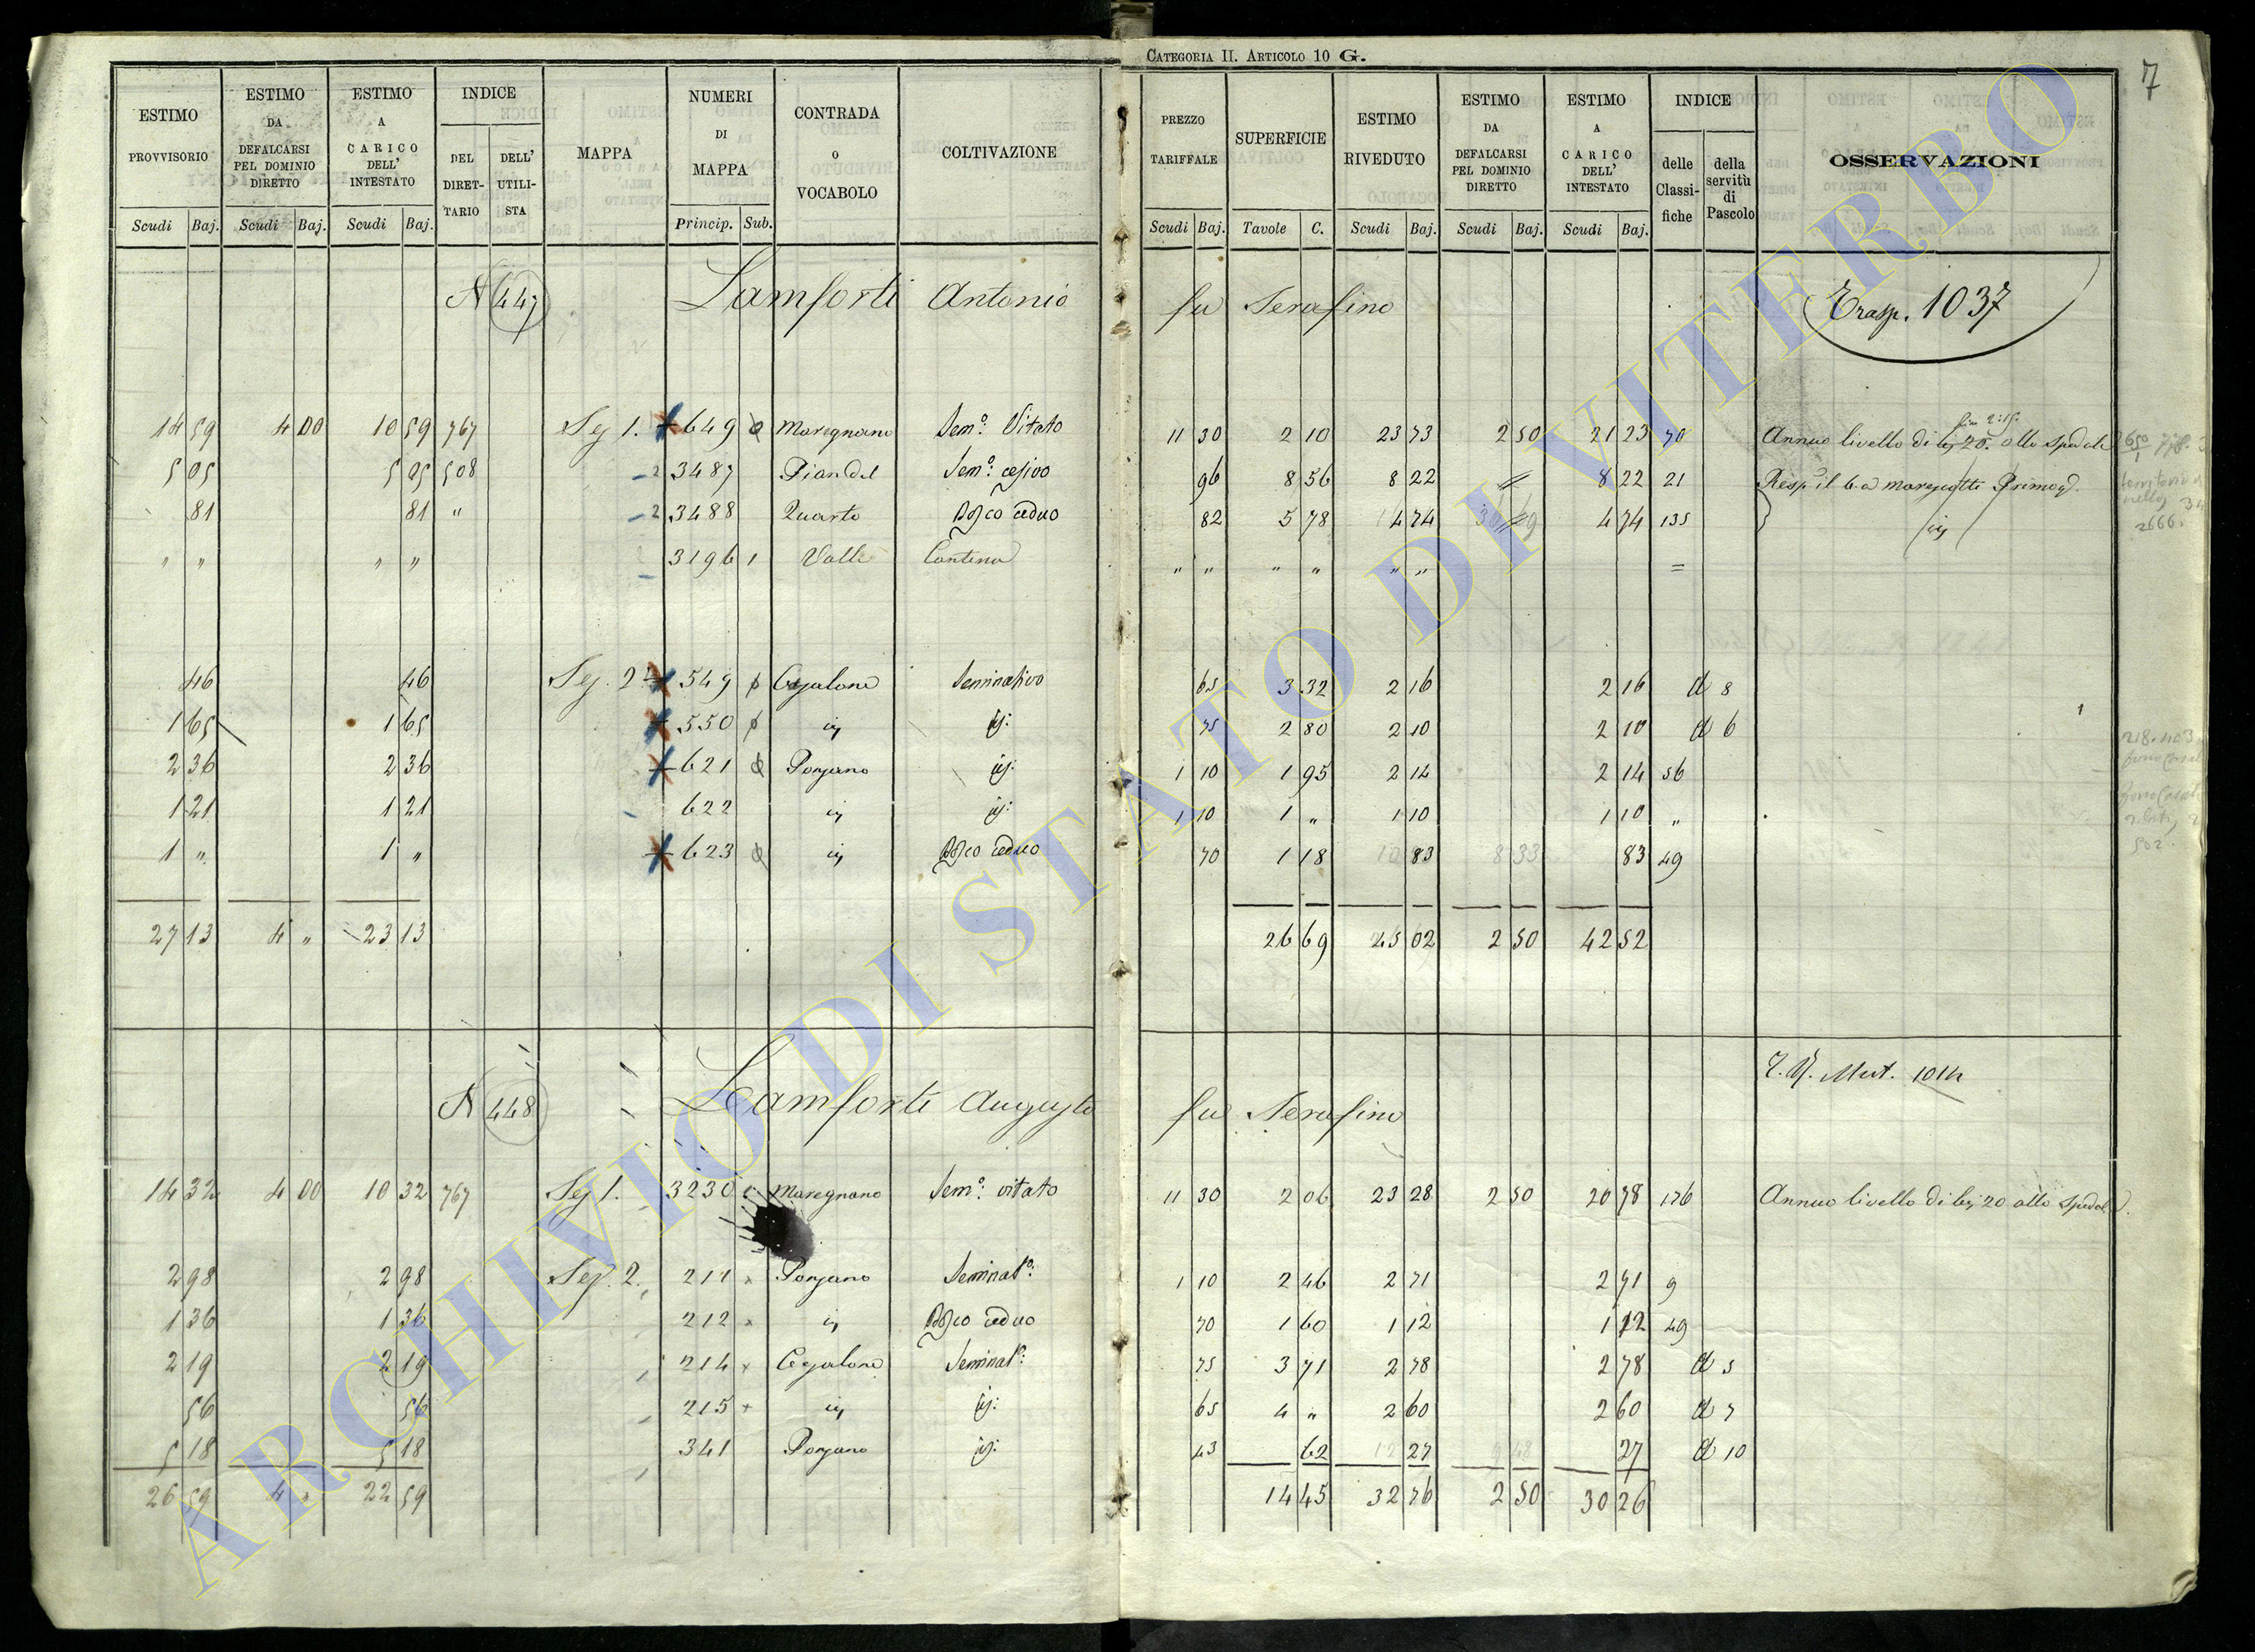 CATEGORIA II. ARTICOLO 10 G.
7
ESTIMO PROVVISORIO Scudi Baj.
ESTIMO DA DEFALCARSI PEL DOMINIO DIRETTO Scudi Baj.
ESTIMO A CARICO DELL' INTESTATO Scudi Baj.
INDICE DEL DIRETTARIO DELL' UTILISTA
MAPPA
NUMERI DI MAPPA Princip. Sub.
CONTRADA O VOCABOLO
COLTIVAZIONE
PREZZO TARIFFALE Scudi Baj.
SUPERFICIE Tavole C.
ESTIMO RIVEDUTO Scudi Baj.
ESTIMO DA DEFALCARSI PEL DOMINIO DIRETTO Scudi Baj.
ESTIMO A CARICO DELL' INTESTATO Scudi Baj.
INDICE delle Classifiche della servitù di Pascolo
OSSERVAZIONI
N 447 Lamforti Antonio fu Serafino Trasp. 1037
14 59 4 00 10 59 767 Sez 1. 649 Maregnano Sem.° Vitato 11 30 2 10 23 73 2 50 21 23 70 Annuo livello di 20. allo Spedale
5 05 5 05 508 2 3487 Pian del Sem.° cesivo 96 8 56 8 22 8 22 21
81 81 " 2 3488 Quarto Bosco ceduo 82 5 78 4 74 4 74 135
" " " " 3196 1 Valle Cantina " " " " " " =
46 46 Sez. 2ª 549 Cezalone Seminativo 65 3 32 2 16 2 16 d 8
1 65 1 65 550 75 2 80 2 10 2 10 d 6
2 36 2 36 621 Ponzano 1 10 1 95 2 14 2 14 56
1 21 1 21 622 1 10 1 " 1 10 1 10 "
1 " 1 " 623 Bosco ceduo 70 1 18 83 83 49
27 13 4 " 23 13 26 69 45 02 2 50 42 52
N 448 Lamforti Augusto fu Serafino Mut. 1014
14 32 4 00 10 32 767 Sez 1. 3230 Maregnano Sem.° vitato 11 30 2 06 23 28 2 50 20 78 176 Annuo livello di 20 allo Spedale
2 98 2 98 Sez. 2. 211 Ponzano Seminat.° 1 10 2 46 2 71 2 71 9
1 36 1 36 212 Bosco ceduo 70 1 60 1 12 1 12 49
2 19 2 19 214 Cezalone Seminat.° 75 3 71 2 78 2 78 d 5
56 56 215 65 4 " 2 60 2 60 d 7
5 18 5 18 341 Ponzano 43 62 27 27 d 10
26 59 4 " 22 59 14 45 32 76 2 50 30 26
ARCHIVIO DI STATO DI VITERBO